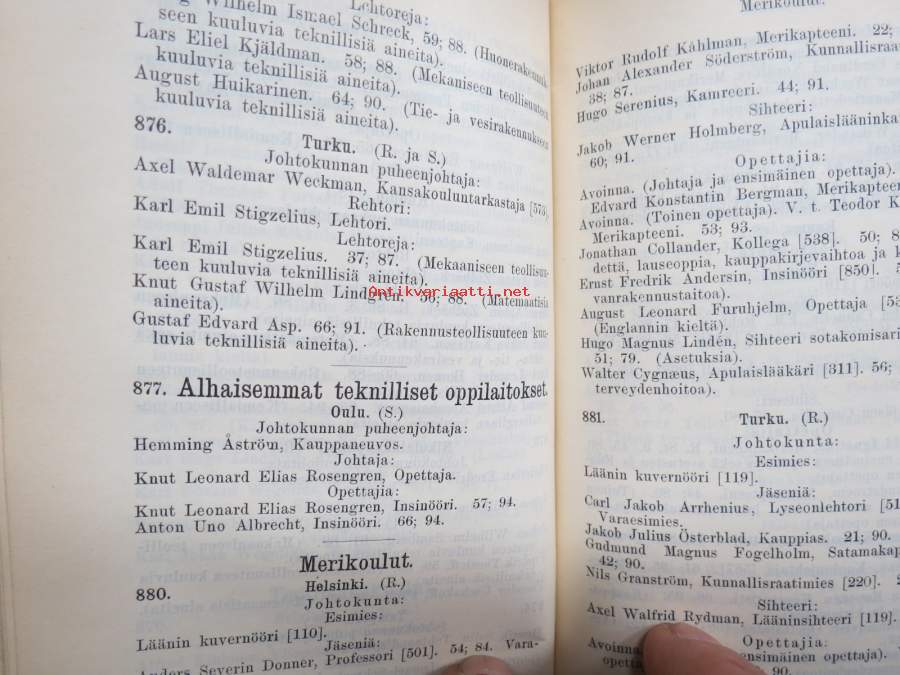 Lehtoreja:
Wilhelm Ismael Schreck, 59; 88. (Huonerakennuk-
seen kuuluvia teknillisiä aineita).
Lars Eliel Kjäldman. 58; 88. (Mekaniseen teollisuuteen
kuuluvia teknillisiä aineita).
August Huikarinen. 64; 90. (Tie- ja vesirakennukseen
kuuluvia teknillisiä aineita).
876.
Turku. (R. ja S.)
Johtokunnan puheenjohtaja:
Axel Waldemar Weckman, Kansakouluntarkastaja [573].
Rehtori:
Karl Emil Stigzelius, Lehtori.
Lehtoreja:
Karl Emil Stigzelius. 37; 87. (Mekaaniseen teollisuu-
teen kuuluvia teknillisiä aineita).
Knut Gustaf Wilhelm Lindgren. 56; 88. (Matemaatisia
aineita).
Gustaf Edvard Asp. 66; 91. (Rakennusteollisuuteen kuu-
luvia teknillisiä aineita).
877. Alhaisemmat teknilliset oppilaitokset.
Oulu. (S.)
Johtokunnan puheenjohtaja:
Hemming Åström, Kauppaneuvos.
Johtaja:
Knut Leonard Elias Rosengren, Opettaja.
Opettajia:
Knut Leonard Elias Rosengren, Insinööri. 57; 94.
Anton Uno Albrecht, Insinööri. 66; 94.
Merikoulut.
880.
Helsinki. (R.)
Johtokunta:
Esimies:
Läänin kuvernööri [110].
Jäseniä:
Anders Severin Donner, Professori [501]. 54; 84. Vara-
Merikoulut.
Viktor Rudolf Kåhlman, Merikapteeni. 22;
Johan Alexander Söderström, Kunnallisraa
38; 87.
Hugo Serenius, Kamreeri. 44; 91.
Sihteeri:
Jakob Werner Holmberg, Apulaislääninka
60; 91.
Opettajia:
Avoinna. (Johtaja ja ensimäinen opettaja).
Edvard Konstantin Bergman, Merikapteen
Avoinna. (Toinen opettaja). V. t. Teodor K
Merikapteeni. 53; 93.
Jonathan Collander, Kollega [538]. 50; 8
dettä, lauseoppia, kauppakirjevaihtoa ja k
Ernst Fredrik Andersin, Insinööri [850]. 5
vanrakennustaitoa).
August Leonard Furuhjelm, Opettaja [53
(Englannin kieltä).
Hugo Magnus Lindén, Sihteeri sotakomisari
51; 79. (Asetuksia).
Walter Cygnæus, Apulaislääkäri [311]. 56;
terveydenhoitoa).
881.
Turku. (R.)
Johtokunta:
Esimies:
Läänin kuvernööri [119].
Jäseniä:
Carl Jakob Arrhenius, Lyseonlehtori [51
Varaesimies.
Jakob Julius Österblad, Kauppias. 21; 90.
Gudmund Magnus Fogelholm, Satamakap
42; 90.
Nils Granström, Kunnallisraatimies [220].
Sihteeri:
Axel Walfrid Rydman, Lääninsihteeri [119].
Opettajia:
Avoinna
ensimäinen opettaja).
opetta
90.
Antikvariaatti.net